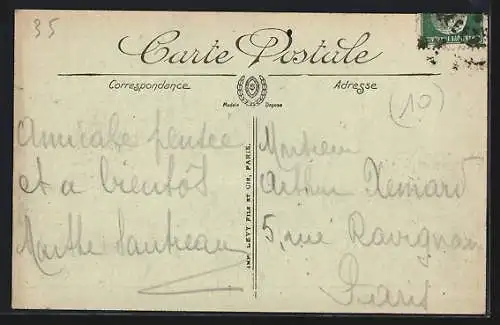 35
Carte Postale
Correspondance
Adresse
Modèle Déposé
(10)
Amicale pensée
et a bientôt
Marthe
Monsieur
Arthur
5, rue Ravignan
Paris
IMP. LÉVY FILS ET CIE, PARIS.